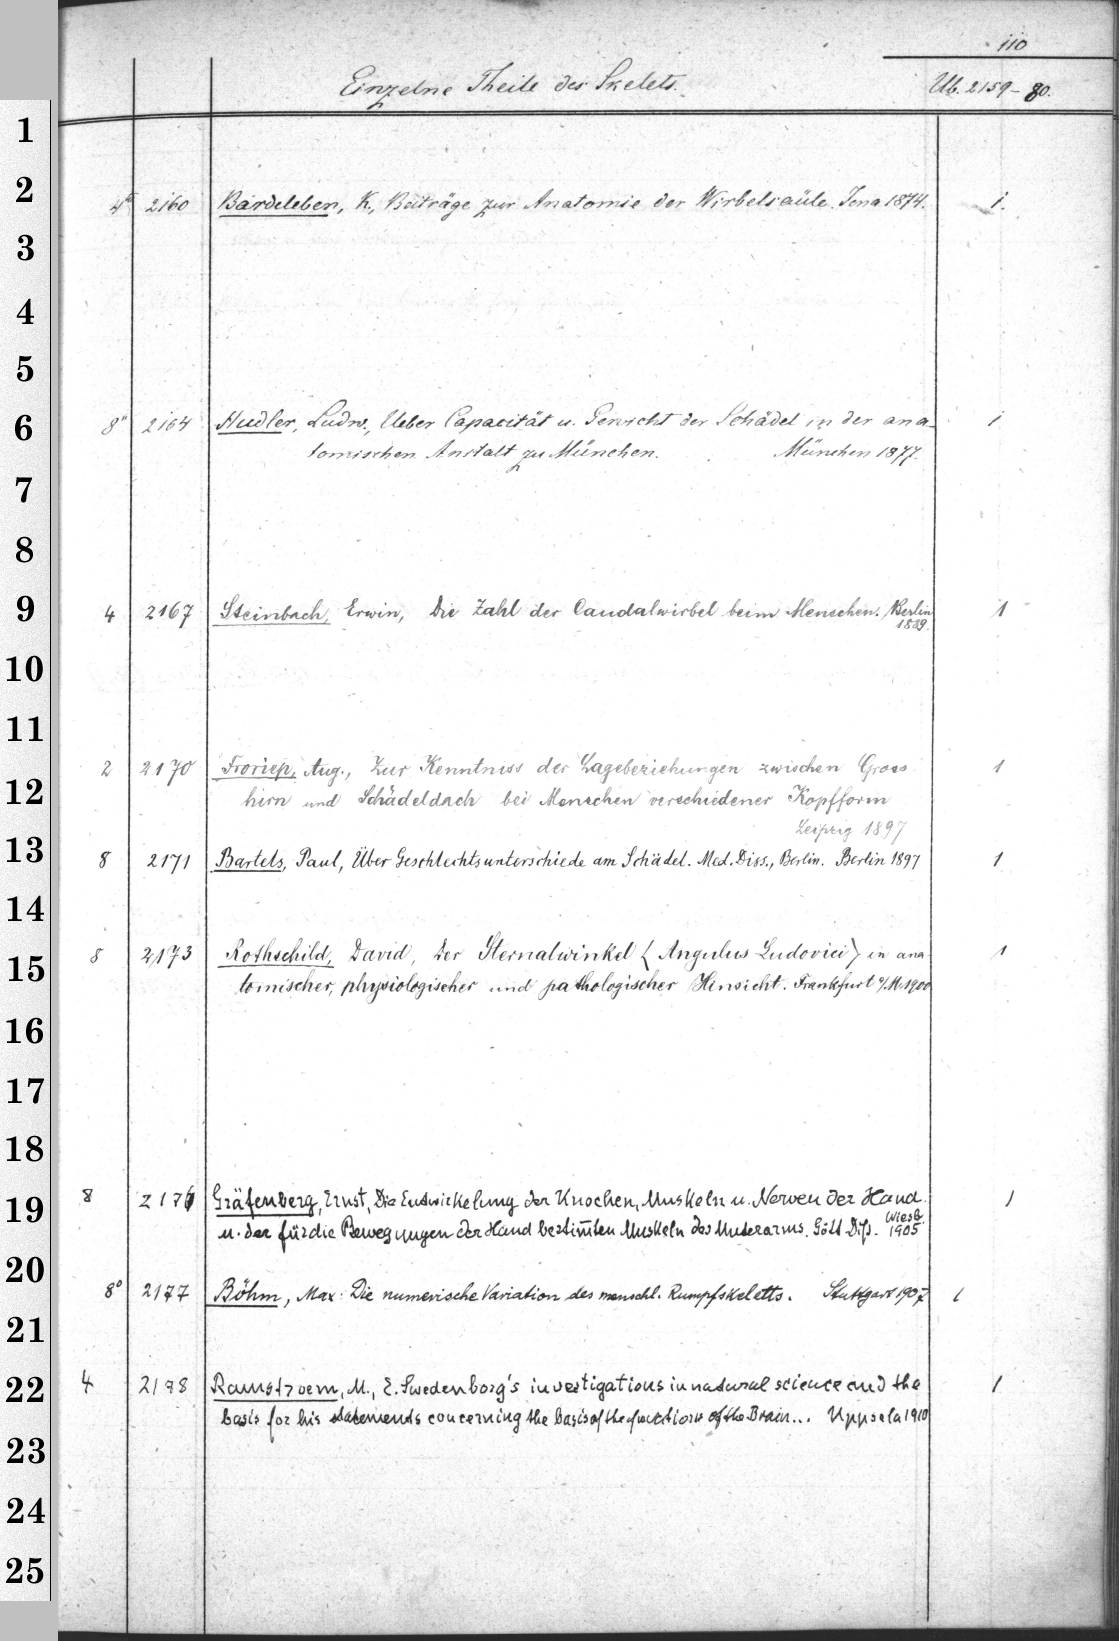 110
Einzelne Theile des Skelets.
Ub. 2159-80.
1
2
3
4
5
6
7
8
9
10
11
12
13
14
15
16
17
18
19
20
21
22
23
24
25
4° 2160 Bardeleben, K., Beiträge zur Anatomie der Wirbelsäule. Jena 1874. 1.
8° 2164 Hudler, Ludw., Ueber Capacität u. Gewicht der Schädel in der ana- 1
tomischen Anstalt zu München. München 1877.
4 2167 Steinbach, Erwin, Die Zahl der Caudalwirbel beim Menschen. Berlin 1
1889.
2 2170 Froriep, Aug., Zur Kenntniss der Lagebeziehungen zwischen Gross 1
hirn und Schädeldach bei Menschen verschiedener Kopfform
Leipzig 1897
8 2171 Bartels, Paul, Über Geschlechtsunterschiede am Schädel. Med. Diss., Berlin. Berlin 1897 1
8 2173 Rothschild, David, Der Sternalwinkel (Angulus Ludovici) in ana 1
tomischer, physiologischer und pathologischer Hinsicht. Frankfurt a/M. 1900
8 2176 Gräfenberg, Ernst, Die Entwickelung der Knochen, Muskeln u. Nerven der Hand 1
u. der für die Bewegungen der Hand bestim̅ten Muskeln des Unterarms. Gött. Diß. Wiesb. 1905
8° 2177 Böhm, Max: Die numerische Variation des menschl. Rumpfskeletts. Stuttgart 1907 1
4 2178 Ramstroem, M., E. Swedenborg's investigations in natural science and the 1
basis for his statements concerning the basis of the functions of the Brain... Uppsala 1910